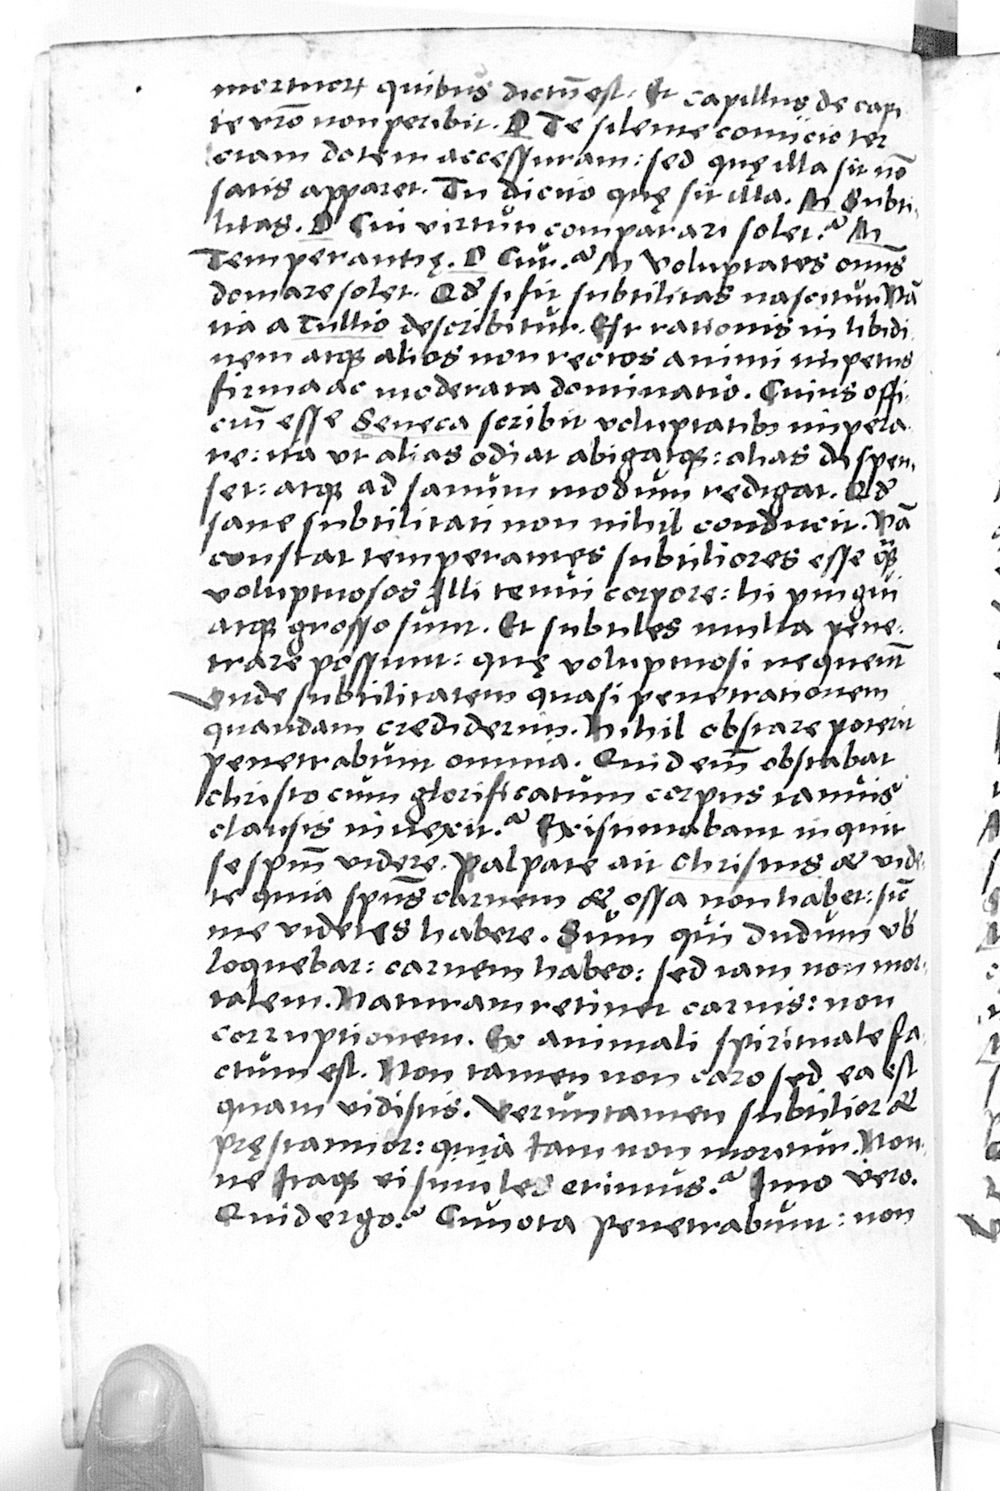 mortuorꝝ quibus dictū est. Et capillus de capi
te vr̄o non peribit. D Te silente coniicio ter
ciam dotem accessuram: sed quę illa sit nō
satis apparet. Tu dicito quę sit illa. M Subti
litas. D Cui virtuti comparari solet? M
Temperantię. D Cur? M Voluptates om̄s
domare solet. Qd̄ si fit subtilitas nascitur. Nā
ita a Tullio describitur. Est rationis in libidi
nem atqꝫ alios non rectos animi impetus
firma ac moderata dominatio. Cuius offi
ciū esse Seneca scribit voluptatibꝫ impera
re: ita vt alias odiat abigatqꝫ: alias dispen
set: atqꝫ ad sanum modum redigat. Qd̄
sane subtilitati non nihil conducit. Nā
constat temperantes subtiliores esse qꝫ
voluptuosos. Illi tenui corpore: hi pingui
atqꝫ grosso sunt. Et subtiles multa pene
trare possunt: quę voluptuosi nequeūt
Vnde subtilitatem quasi penetrationem
quandam crediderim. Nihil obstare poterit
penetrabunt omnia. Quid em̄ obstabat
christo cum glorificatum corpus ianuis
clausis inuexit? Existimabant inquit
se spm̄ videre. Palpate ait Christus & vide
te quia spūs carnem & ossa non habet: sic̄
me videtis habere. Sum qui dudum vob̄
loquebar: carnem habeo: sed iam non mor
talem. Naturam retinet carnis: non
corruptionem. Ex animali spirituale fa
ctum est. Non tamen non caro sed ea est
quam vidistis. Veruntamen subtilior &
pręstantior: quia iam non moritur. Non
ne Itaqꝫ ei similes erimus? Imo vero.
Quid ergo? Cuncta penetrabunt: non